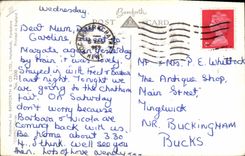 Wednesday.
Bamforth
Dear Mum,
Caroline,
Margate again yesterday
by train it was lovely.
Stayed in with Fred &
last night. Tonight we
are going to the Chatham
fair. On Saturday
don't worry because
Barbara & Nicola are
coming back with us
Be home about 3.30
4. I think. Well see you
then. Lots of love
Mr & Mrs P. E. Whittock
The Antique Shop,
Main Street,
Tingewick
NR BUCKINGHAM
BUCKS